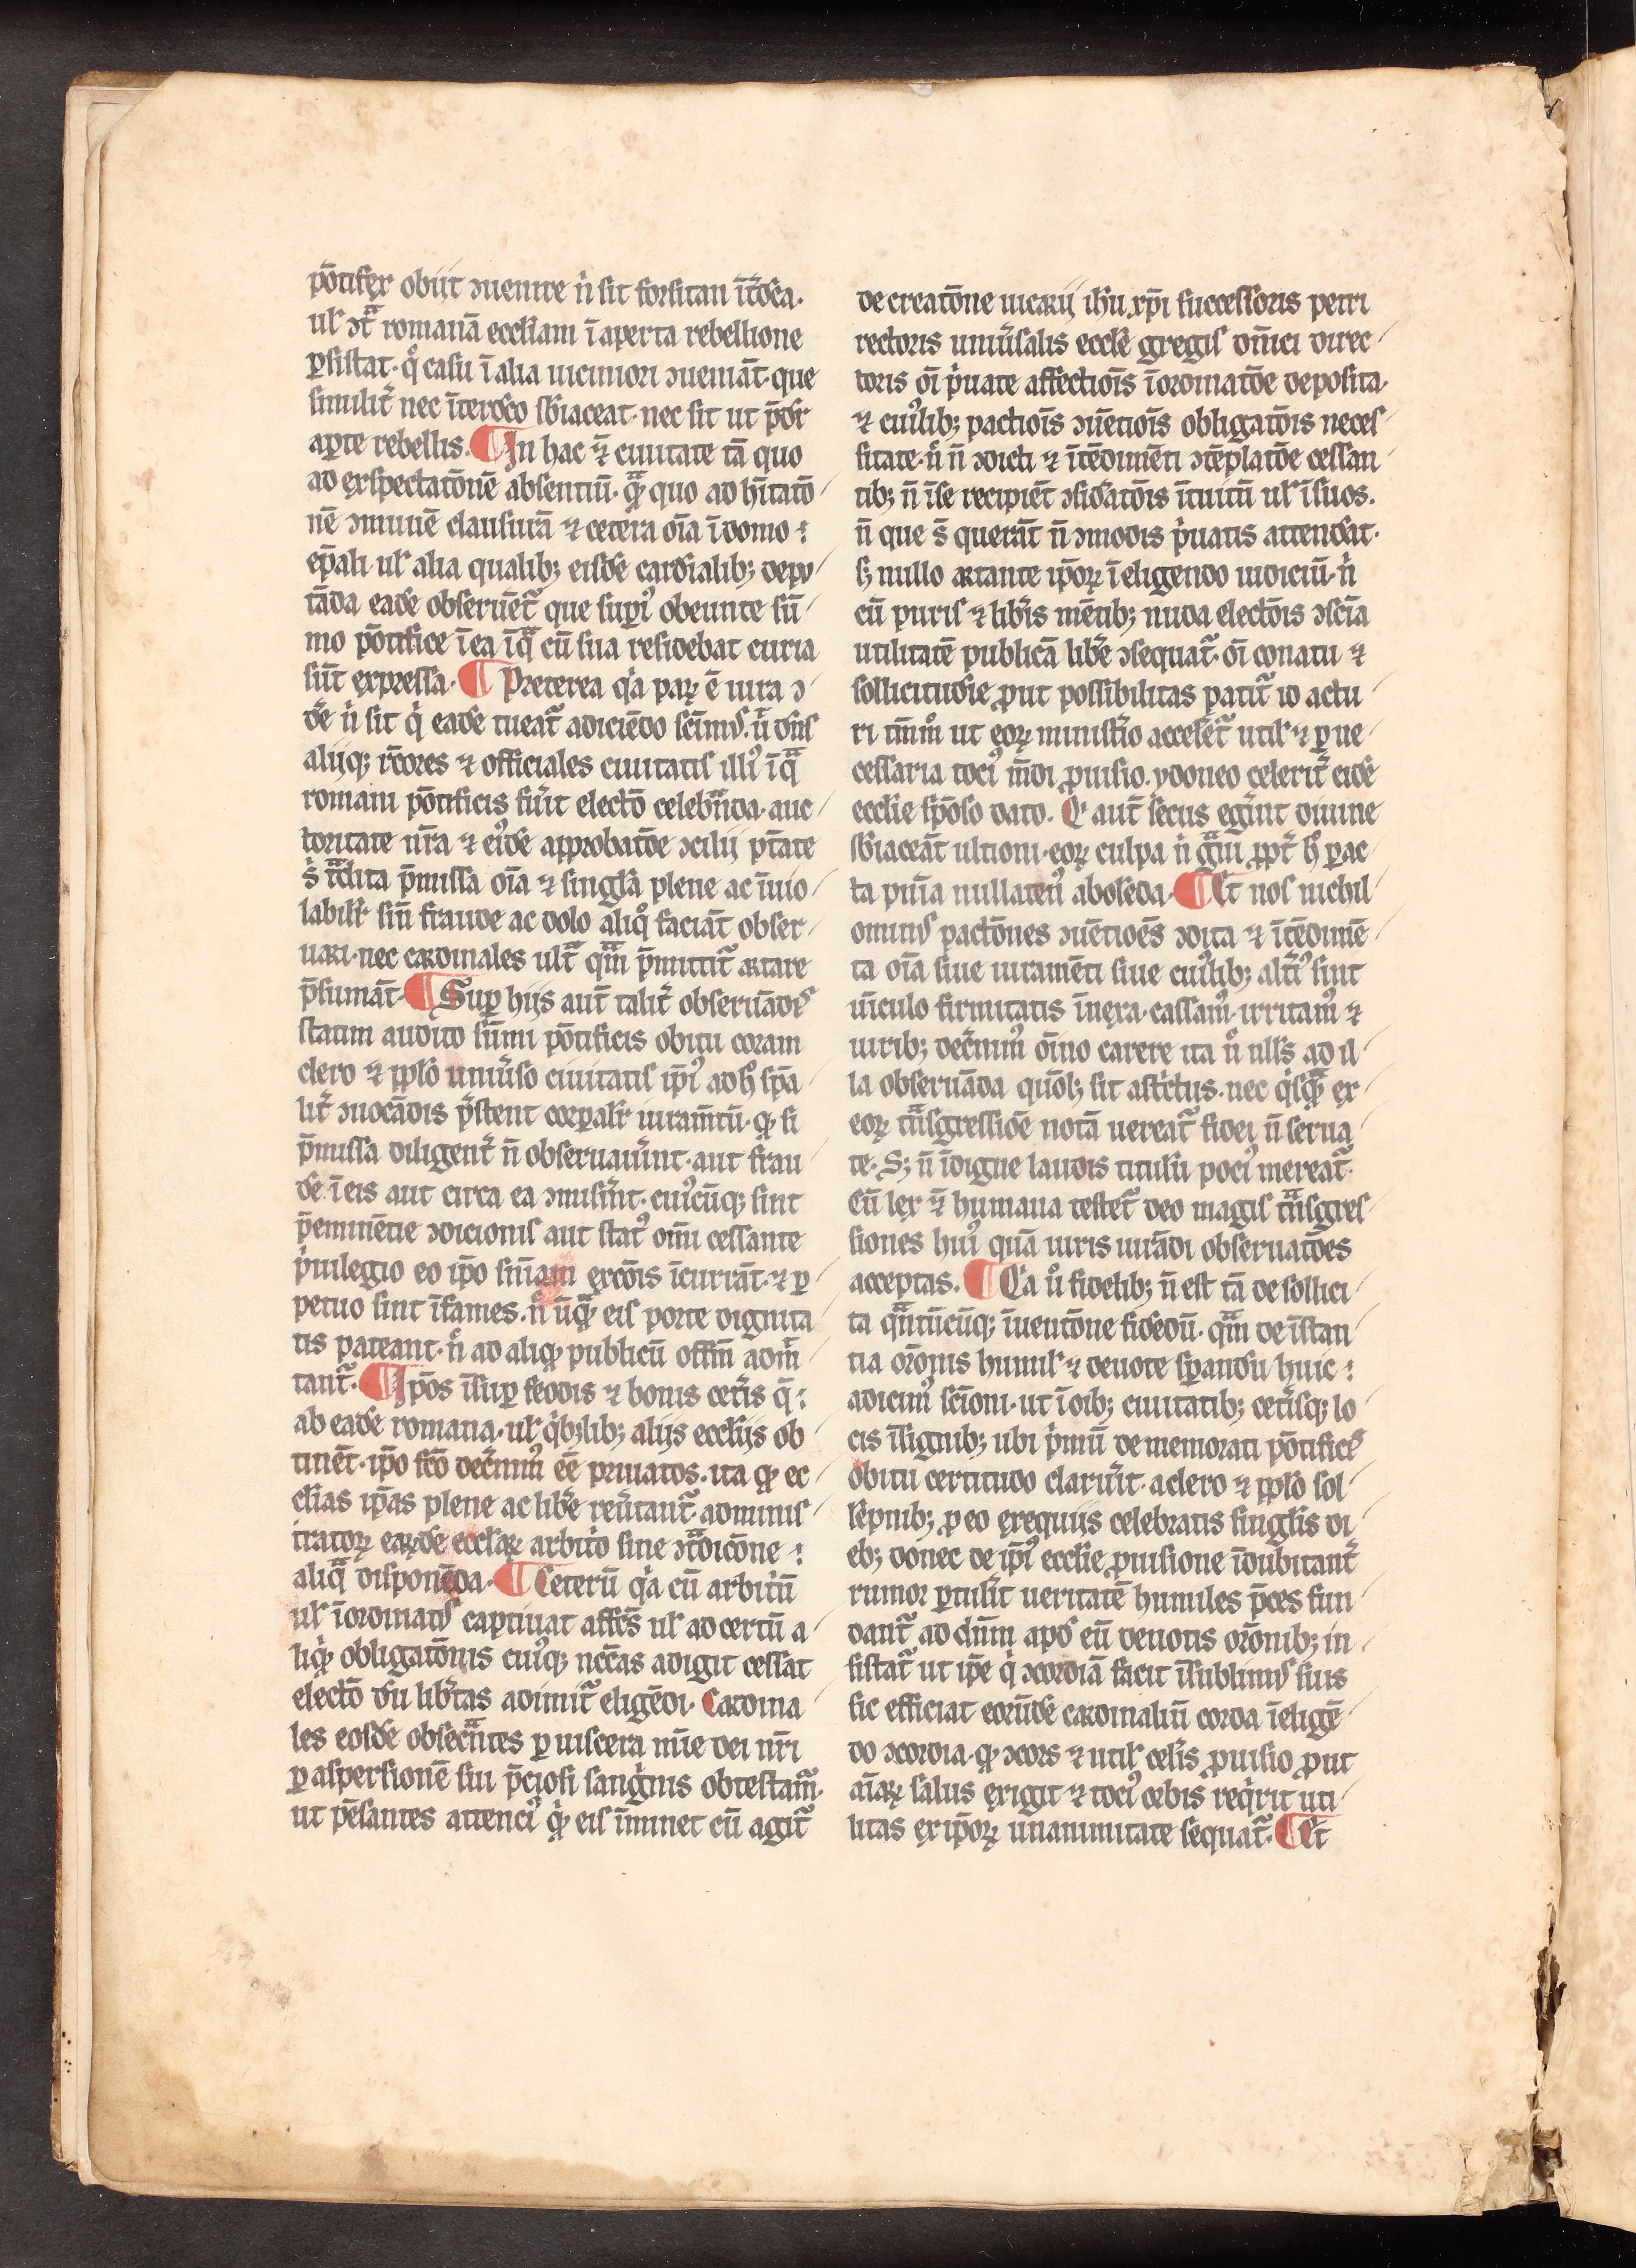 põtifex obijt ↄuenire n̉ sit forsitan ĩtdc̃a.
ul̉ ↄt̃ romanã eccl̉iam ĩ aperta rebellione
ꝑsistat. q̊ casu ĩ alia uiciniori ↄueniãt. que
similit̉ nec ĩterdc̃o sb̉iaceat. nec sit ut p̃dr̉
aꝑte rebellis. ¶ In hac ⁊̃ ciuitate tã quo
ad exspectatõnẽ absentiũ. ꝙ̃ quo ad hĩtatõ
nẽ ↄmunẽ clausurã ⁊ cetera oĩa ĩ domo
ep̃ali ul̉ alia qualibꝫ eisdẽ cardĩalibꝫ depu
tãda eadẽ obseruẽt̃ que suꝑi᷒ obeunte sũ
mo põtifice ĩ ea ĩ q̃ cũ sua residebat curia
sũt expressa. ¶ Preterea q̉a parꝝ ẽ iura ↄ
dẽ n̉ sit q̉ eadẽ tueat̃ adiciẽdo sc̃imꝰ. ũ dñs
alijqꝫ rc̃ores ⁊ officiales ciuitatis illi᷒ ĩ q̃
romani põtificis fũit electõ celeb̃nda. auc
toritate nr̃a ⁊ ei᷒dẽ approbatõe ↄcilij pt̃ate
s̉ t̃dita p̃missa oĩa ⁊ singl̉a plene ac ĩuio
labilit̉ siñ fraude ac dolo aliq̊ faciãt obser
uari. nec cardinales ult̃ qm̃ p̃mittit̃ artare
p̃sumãt. ¶ Suꝑ hijs aut̃ talit̉ obseruãdꝭ
statim audito sũmi põtificis obitu coram
clero ⁊ ppl̉o uniũso ciuitatis ip̃i᷒ ad h̊ sp̃a
lit̉ ↄuocãdis p̃stent corꝑalit̉ iuram̃tũ. ꝙ si
p̃missa diligent̉ ñ obseruauĩnt. aut frau
dẽ ĩ eis aut circa ea ↄmisĩnt. cui᷒cũqꝫ sint
p̃eminẽtie ↄdicionis aut stat᷒ om̃i cessante
p̉uilegio eo ip̃o sñiam exc̃õis ĩcurrãt. ⁊ ꝑ
petuo sint ĩfames. n̊ ũꝙ̃ eis porte dignita
tis pateant. n̊ ad aliqꝫ publicũ offm̃ adm̃
tant̃. ¶ Ip̃os ĩsuꝑ feodis ⁊ bonis cet̉is q̃
ab eadẽ romana. ul̉ q̉bꝫlibꝫ alijs eccl̉ijs ob
tinẽt. ip̃o fc̃o dec̉nim᷒ eẽ priuatos. ita ꝙ ec
cl̉ias ip̃as plene ac libẽ reũtant̃. adminis
tratorꝝ earꝝdẽ eccl̉arꝝ arbit̉o sine ↄt̃dicõne
aliq̃ disponẽda. ¶ Ceterũ q̉a cũ arbit̉ũ
ul̉ ĩordinatꝰ captiuat affc̃s ul̉ ad certũ a
liqꝫ obligatõnis cui᷒qꝫ nc̃c̃as adigit cessat
electõ dũ lib̉tas adimit̃ eligẽdi. Cardina
les eosdẽ obsecr̃ntes ꝑ uiscera mĩe dei nr̃i
ꝑ aspersionẽ sui p̃ciosi sang̉nis obtestam᷒.
ut pẽsantes attenci᷒ q̉ eis ĩminet cũ agit̃
de creatõne uicarij ih̃u xp̃i successoris petri
rectoris uniũsalis eccl̉e gregis om̃ici direc
toris oĩ p̉uate affectiõis ĩordinatõe deposita.
⁊ cui᷒libꝫ pactiõis ↄuẽtiõis obligatõis neces
sitate. n̊ ñ ↄdicti ⁊ ĩtẽdimẽti ↄtẽplatõe cessan
tibꝫ ñ ĩ se recipiẽt ↄsid̉atõis ĩtuitũ ul̉ ĩ suos.
ñ que s̃ querãt ñ ↄmodis p̉uatis attendãt.
sꝫ nullo artante ip̃orꝝ ĩ eligendo iudiciũ. n̉
cũ puris ⁊ lib̉is mẽtibꝫ nuda electõis ↄsc̃ia
utilitatẽ publicã lib̉e ↄsequat̃. oĩ conatu ⁊
sollicitudĩe ꝓut possibilitas patit̃ id actu
ri tm̃m̊ ut eorꝝ minist̉io accelet̃ util̉ ⁊ ꝑ ne
cessaria toci᷒ mũdi ꝓuisio. ydoneo celerit̉ eidẽ
eccl̉ie spõso dato. Q̉ aut̃ secus eg̉int diuine
sb̉iaceãt ultioni. eorꝝ culpa n̉ g̃ui ꝓpt̉ h̊ ꝑac
ta pnĩa nullaten᷒ abolẽda. ¶ Et nos nichil
ominꝰ pactõnes ↄuẽtiões ↄdita ⁊ ĩtẽdimẽ
ta oĩa siue iuramẽti siue cui᷒libꝫ alt̉i᷒ sint
uĩculo firmitatis ĩnexa. cassam᷒. irritam᷒ ⁊
uiribꝫ dec̉nim᷒ oĩno carere ita ũ nll̉s ad il
la obseruãda quõlꝫ sit ast̉ctus. nec q̉sꝙ̃ ex
eorꝝ tñsgressiõe notã uereat̃ fidei ñ serua
te. Sꝫ ñ ĩdigne laudis titulũ poci᷒ mereat̃.
Cũ lex ⁊̃ humana testet̃ deo magis tñsgres
siones hui᷒ quã iuris iurãdi obseruatões
acceptas. ¶ Ea ũ fidelibꝫ ñ est tã de sollici
ta qñtũcũqꝫ ĩuentõne fidẽdũ. qm̃ de ĩstan
tia or̃onis humil̉ ⁊ deuote sꝑandũ huic
adicim᷒ sc̃ioni. ut ĩ oĩbꝫ ciuitatibꝫ cet̉isqꝫ lo
cis ĩsignibꝫ ubi p̉mũ de memorati põtificꝭ
obitu certitudo claruĩt. a clero ⁊ ppl̉o sol
lẽpnibꝫ ꝓ eo exequijs celebratis singl̉is di
ebꝫ donec de ip̃i᷒ eccl̉ie ꝓuisione ĩdubitant̉
rumor ꝑtul̉it ueritatẽ humiles p̃ces fun
dant̃ ad dñm apd̉ eũ deuotis or̃onibꝫ in
sistat̃ ut ip̃e q̉ ↄcordiã facit ĩ sublimibꝰ suis
sic efficiat eorũdẽ cardinaliũ corda ĩ eligẽ
do ↄcordia. ꝙ ↄcors ⁊ util̉ cel̉is ꝓuisio ꝓut
aĩarꝝ salus exigit ⁊ toci᷒ orbis req̉rit uti
litas ex ip̃orꝝ unanimitate sequat̃. ¶ Et